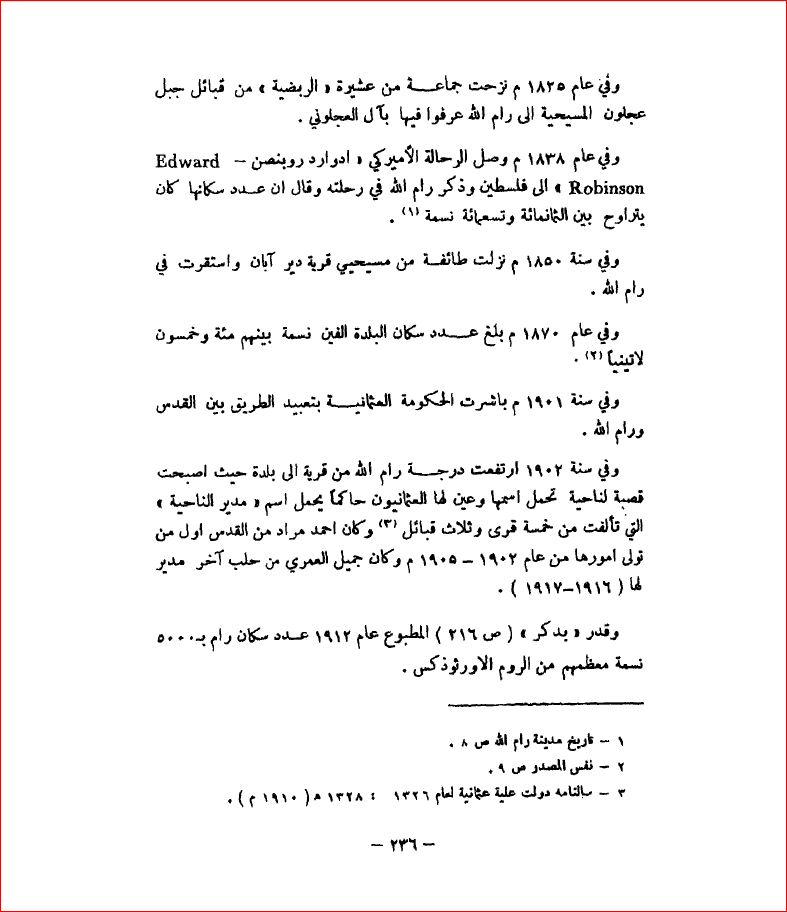 وفي عام ١٨٢٥ م نزحت جماعة من عشيرة « الربضية » من قبائل جبل
عجلون المسيحية الى رام الله عرفوا فيها بآل العجلوني .
وفي عام ١٨٣٨ م وصل الرحالة الأميركي « ادوارد روبنصن – Edward
Robinson » الى فلسطين وذكر رام الله في رحلته وقال ان عدد سكانها كان
يتراوح بين الثمانمائة وتسعمائة نسمة (١) .
وفي سنة ١٨٥٠ م نزلت طائفة من مسيحيي قرية دير آبان واستقرت في
رام الله .
وفي عام ١٨٧٠ م بلغ عدد سكان البلدة الفين نسمة بينهم مئة وخمسون
لاتينياً (٢) .
وفي سنة ١٩٠١ م باشرت الحكومة العثمانية بتعبيد الطريق بين القدس
ورام الله .
وفي سنة ١٩٠٢ ارتفعت درجة رام الله من قرية الى بلدة حيث اصبحت
قصبة لناحية تحمل اسمها وعين لها العثمانيون حاكماً يحمل اسم « مدير الناحية »
التي تألفت من خمسة قرى وثلاث قبائل (٣) وكان احمد مراد من القدس اول من
تولى امورها من عام ١٩٠٢ – ١٩٠٥ م وكان جميل العمري من حلب آخر مدير
لها ( ١٩١٦–١٩١٧ ) .
وقدر « بدكر » ( ص ٢١٦ ) المطبوع عام ١٩١٢ عدد سكان رام بـ ٥٠٠٠
نسمة معظمهم من الروم الاورثوذكس .
١ – تاريخ مدينة رام الله ص ٨ .
٢ – نفس المصدر ص ٩ .
٣ – سالنامه دولت علية عثمانية لعام ١٣٢٦ : ١٣٢٨ ه ( ١٩١٠ م ) .
– ٢٣٦ –